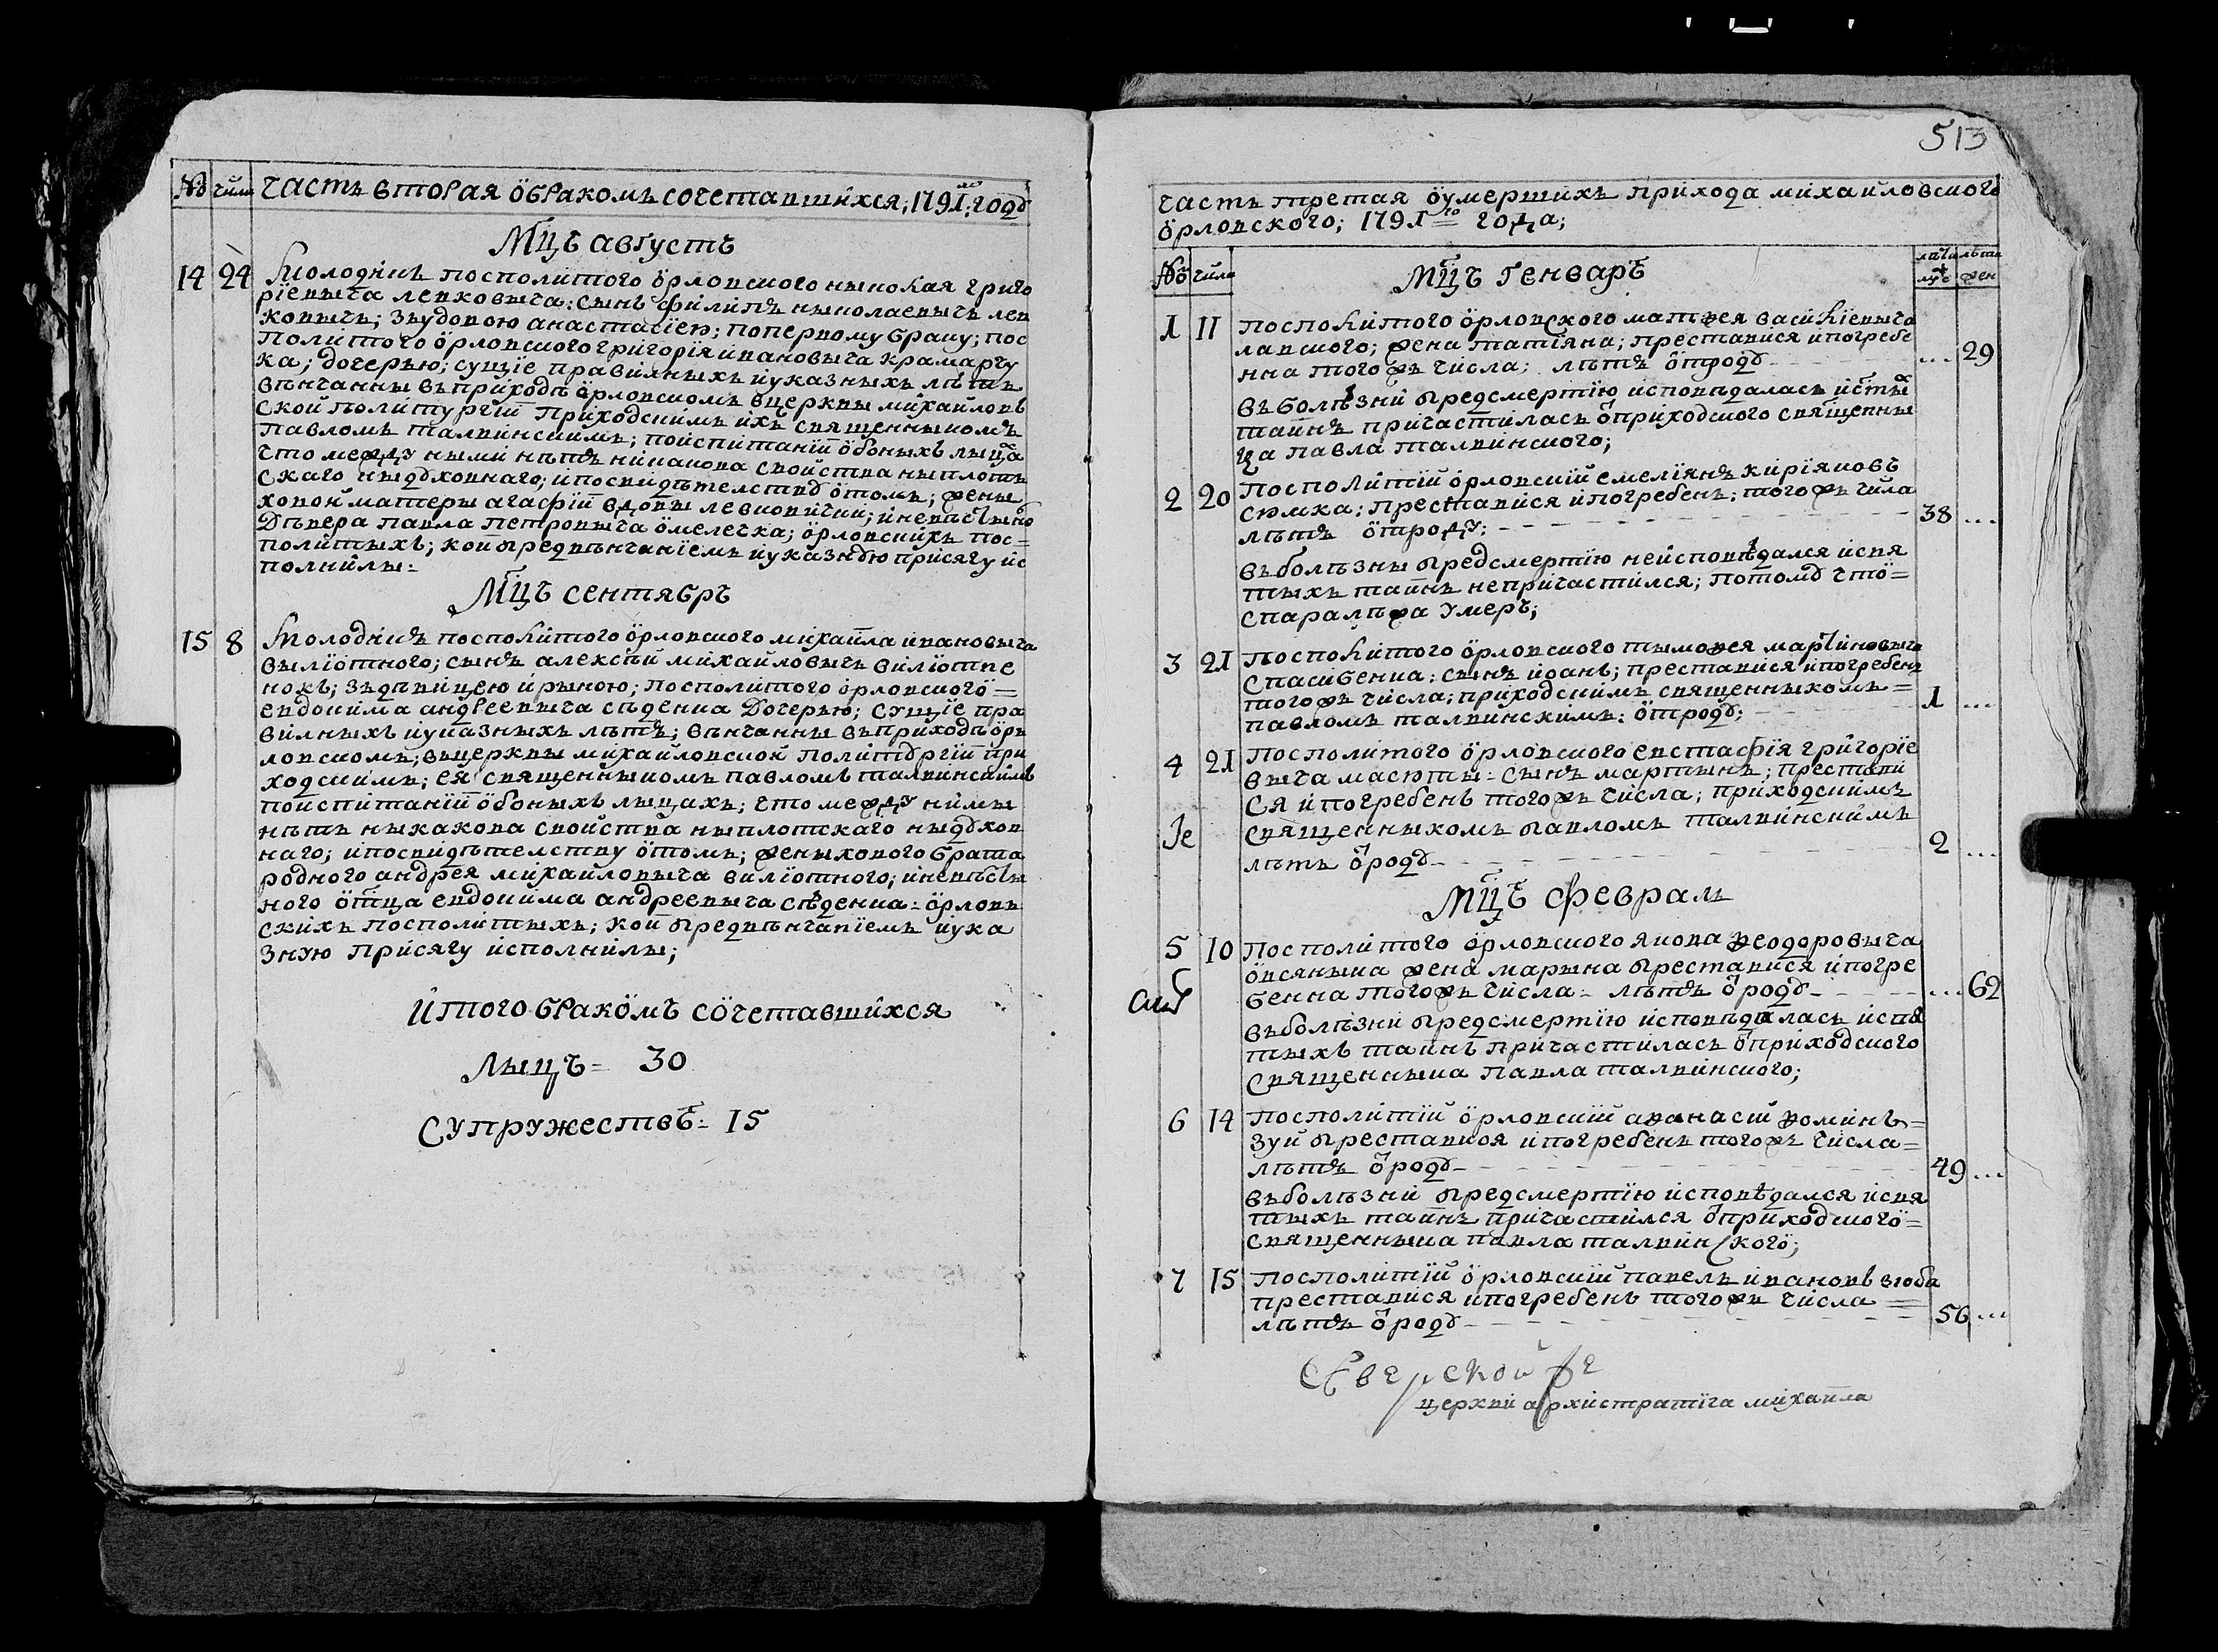 № числ Часть вторая ö бракомъ сочетавшихся; 1791го годꙋ
Мц҃ъ августъ
14 24 Молодикъ посполитого öрловского николая григо
риевыча левковыча: сынъ филипъ николаевычъ лев
ковычъ; зъудовою анастасїею; попервому браку; пос
политого öрловского григорїя ивановыча крамарчу
ка; дочерью; сущїе правилныхъ иуказныхъ лѣтъ
вѣнчанны въприходѣ öрловскомъ вцеркви михайлов
ской политургїи приходскимъ ихъ священникомъ
павломъ талвинскимъ; поиспитанїи öбоныхъ лыцахъ
что между ными нѣтъ никакова свойства ныплот
скаго ныдꙋховнаго; ипосвидѣтелствꙋ öтомъ; жены
ховой матеры агафїи вдовы левковички; иневѣстыно
дѣвера павла петровыча öмелечка; öрловскихъ пос=
политыхъ; кой предвѣнчанїемъ иуказнꙋю присягу ис
полнилы:
Мц҃ъ сентябръ
15 8 Молодикъ посполитого öрловского михаила ивановыча
вылїотного; сынъ алексѣй михайловычъ вилїотне
нокъ; зъдѣвицею ирыною; посполитого öрловскогö=
евдокима андреевыча сѣденка дочерью; сущїе пра
вилныхъ иуказныхъ лѣтъ; вѣнчанны въприходѣ öрв
ловскомъ; вьцеркви михайловской политꙋргїи при
ходскимъ; ея священныкомъ павломъ талвинскимъ
поиспитанїи öбоныхъ лыцахъ; что между нимы
нѣтъ ныкакова свойства ныплотскаго ныдꙋхов
наго; ипосвидѣтелству öтомъ; женыхового брата
родного андрея михайловыча вилїотного; иневѣсты
ного öтца евдокима андреевыча сѣденка: öрлов
скихъ посполитыхъ; кой предвѣнчанїемъ иука
зную присягу исполнилы;
Итого бракöмъ сöчетавшихся
Лыцъ= 30
Супружествъ: 15
513
Часть третая öумершихъ прихода михайловского
öрловского; 1791го года;
№ числ Мц҃ъ Генваръ муж жен
1 11 Посполитого öрловского матвея василїевыча
лавского; жена татїяна; преставися ипогребе
нна того жъ числа; лѣтъ öтродꙋ ... 29
въболѣзни предсмертїю исповѣдалась истых
тайнъ причастилась öприходского священны
ка павла талвинского;
2 20 Посполитїй öрловскїй емелїянъ кирїяновъ
сюмка: преставися ипогребенъ; того жъ числа
лѣтъ öтроду: 38 ...
въболѣзны предсмертїю неисповѣдался исвя
тыхъ тайнъ непричастился; потомꙋ чтö=
спаралѣжа умеръ;
3 21 Посполитого öрловского тымофея мартиновыча
спасибенка: сынъ иоанъ; преставися ипогребенъ
того жъ числа; приходскимъ священныкомъ=
павломъ талвинскимъ: öтродꙋ; 1 ...
4 21 Посполитого öрловского евстафїя григорїе
выча масюты: сынъ мартынъ; престави
ся ипогребенъ того жъ числа; приходскимъ
священныкомъ павломъ талвинскимъ
лѣтъ öродꙋ 2 ...
Мц҃ъ февраль
5 10 Посполитого öрловского якова феодоровыча
öвсяныка жена марына преставися ипогре
бенна того жъ числа: лѣтъ öродꙋ ... 62
въболѣзни предсмертїю исповѣдалась исвя
тыхъ тайнъ причастилась öприхöдского
священныка павла талвинского;
6 14 Посполитїй öрловскїй афанасїй фоминъ=
зуй преставися ипогребенъ того жъ числа=
лѣтъ öродꙋ 49 ...
въболѣзни предсмертїю исповѣдался исвя
тыхъ тайнъ причастился öприходскогö=
священныка павла талвинскогö;
7 15 Посполитїй öрловскїй павелъ ивановъ зюба
преставися ипогребенъ того жъ числа=
лѣтъ öродꙋ 56 ...
церкви архистратига михаила